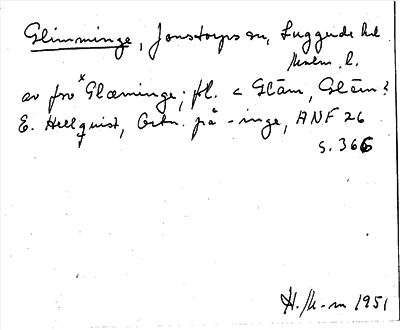 Glimminge, Jonstorps sn, Luggude hd
Malm. l.
av fro *Glæminge; pl. < Glām, Glēm?
E. Hellquist, Ortn. på -inge, ANF 26
s. 366
H./U-m 1951